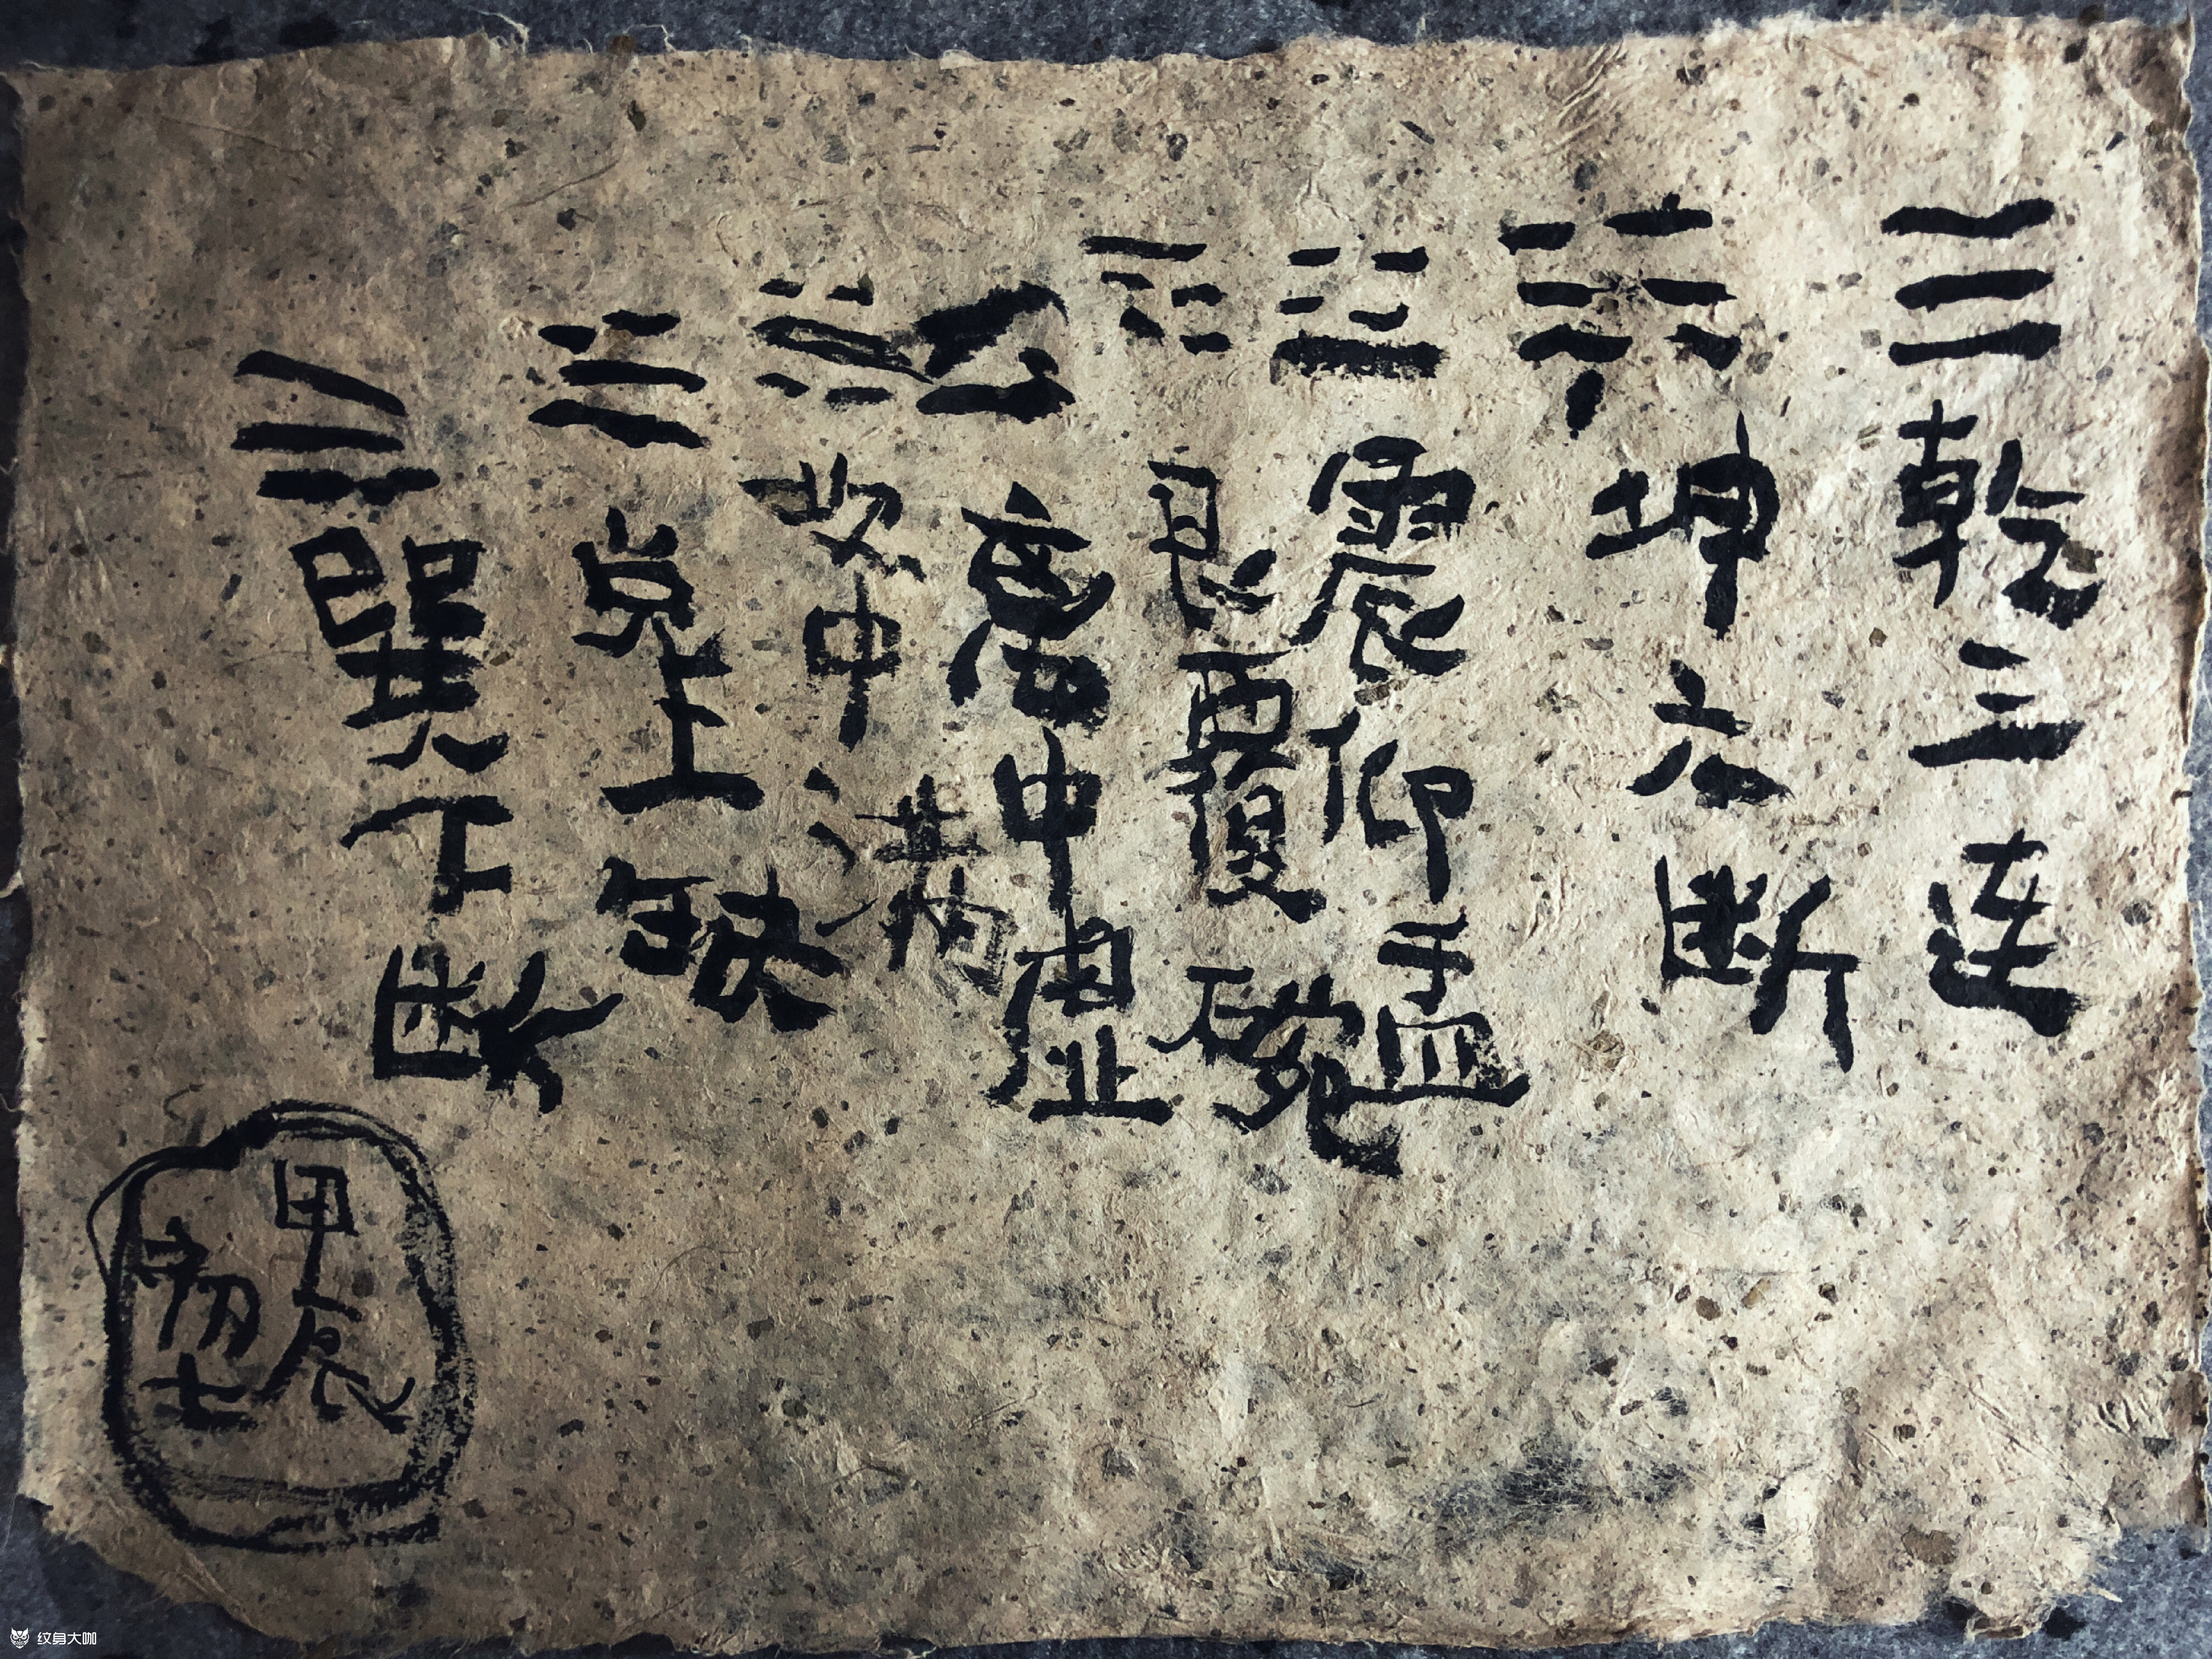 ☰乾三连
☷坤六断
☳震仰盂
☶艮覆碗
☲离中虚
☵坎中满
☱兑上缺
☴巽下断
甲辰
初七
纹身大咖